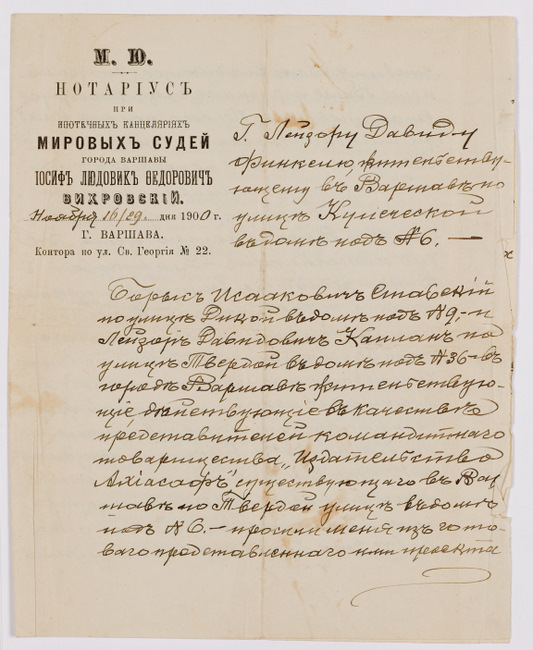 М. Ю.
НОТАРІУСЪ
ПРИ
ИПОТЕЧНЫХЪ КАНЦЕЛЯРІЯХЪ
МИРОВЫХЪ СУДЕЙ
ГОРОДА ВАРШАВЫ
ІОСИФЪ ЛЮДОВИКЪ ѲЕДОРОВИЧЪ
ВИХРОВСКІЙ.
Ноября 16/29 дня 1900 г.
Г. ВАРШАВА.
Контора по ул. Св. Георгія № 22.
Г. Лейзору Давиду
Финкелю, жительству-
ющему въ Варшавѣ по
улицѣ Купеческой
въ домѣ подъ №6. —
Борысъ Исааковичъ Ставскій
по улицѣ Дикой въ домѣ подъ №9,- и
Лейзоръ Давидовичъ Капланъ по
улицѣ Твердой въ домѣ подъ №36- въ
городѣ Варшавѣ жительствую-
щіе дѣйствующіе въ качествѣ
представителей командитнаго
товарищества „Издательство
Ахіасафъ" существующаго въ Вар
шавѣ по Твердой улицѣ въ домѣ
подъ №6.- просили меня изъ гото
ваго представленнаго ими проекта